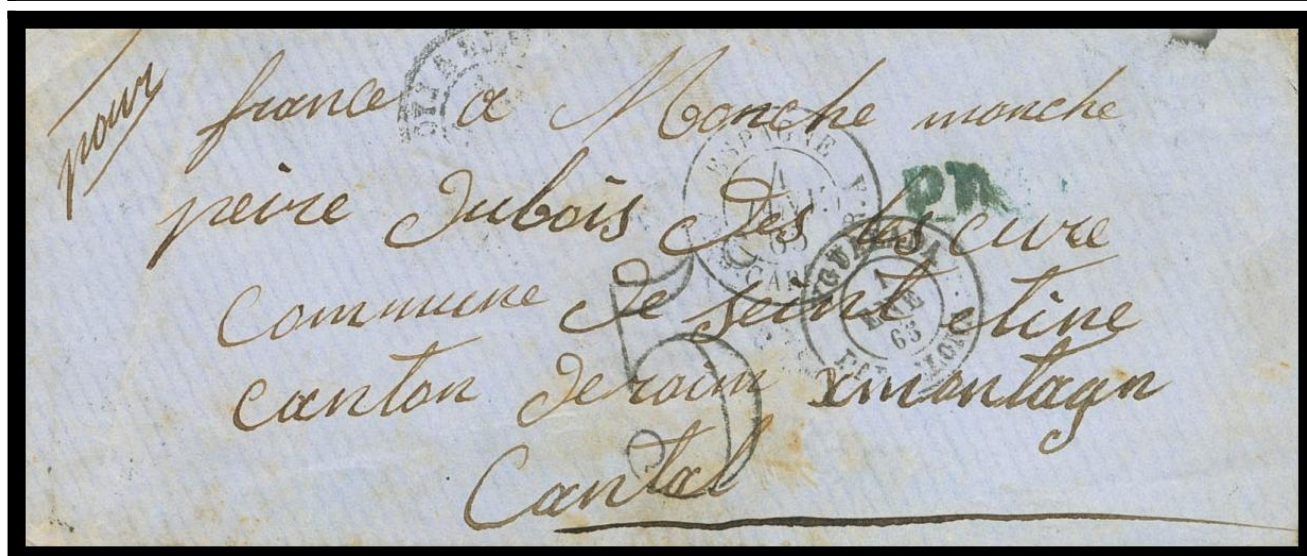 pour
france a Monche monche
peire Dubois Des las cure
commune de seint etine
canton de roim xmontagn
Cantal
PD
ESPAGNE
1
63
5
1
ENE
63